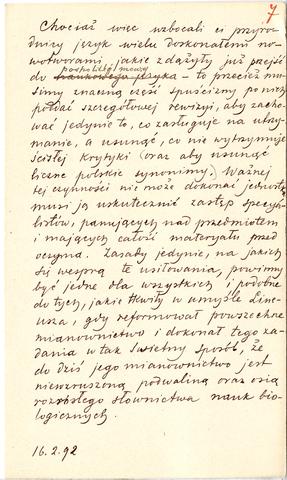 7
Chociaż więc wzbogacili ci przyro-
dnicy język wielu doskonałemi no-
wotworami, jakie zdążyły już przejść
pospolitej mowy
do naukowego języka – to przecież mu-
simy znaczną część spuścizny po nich
poddać szczegółowej rewizyi, aby zacho-
wać jedynie to, co zasługuje na utrzy-
manie, a usunąć, co nie wytrzymuje
ścisłej krytyki (oraz aby usunąć
liczne polskie synonimy). Ważnej
tej czynności nie może dokonać jednostka,
musi ją uskutecznić zastęp specya-
listów, panujących nad przedmiotem
i mających całość materyału przed
oczyma. Zasady jedynie, na jakich
się wesprą te usiłowania, powinny
być jedne dla wszystkich i podobne
do tych, jakie tkwiły w umyśle Line-
usza, gdy reformował powszechne
mianownictwo i dokonał tego za-
dania w tak świetny sposób, że
do dziś jego mianownictwo jest
niewzruszoną podwaliną oraz osią
rozrosłego słownictwa nauk bio-
logicznych.
16.2.92